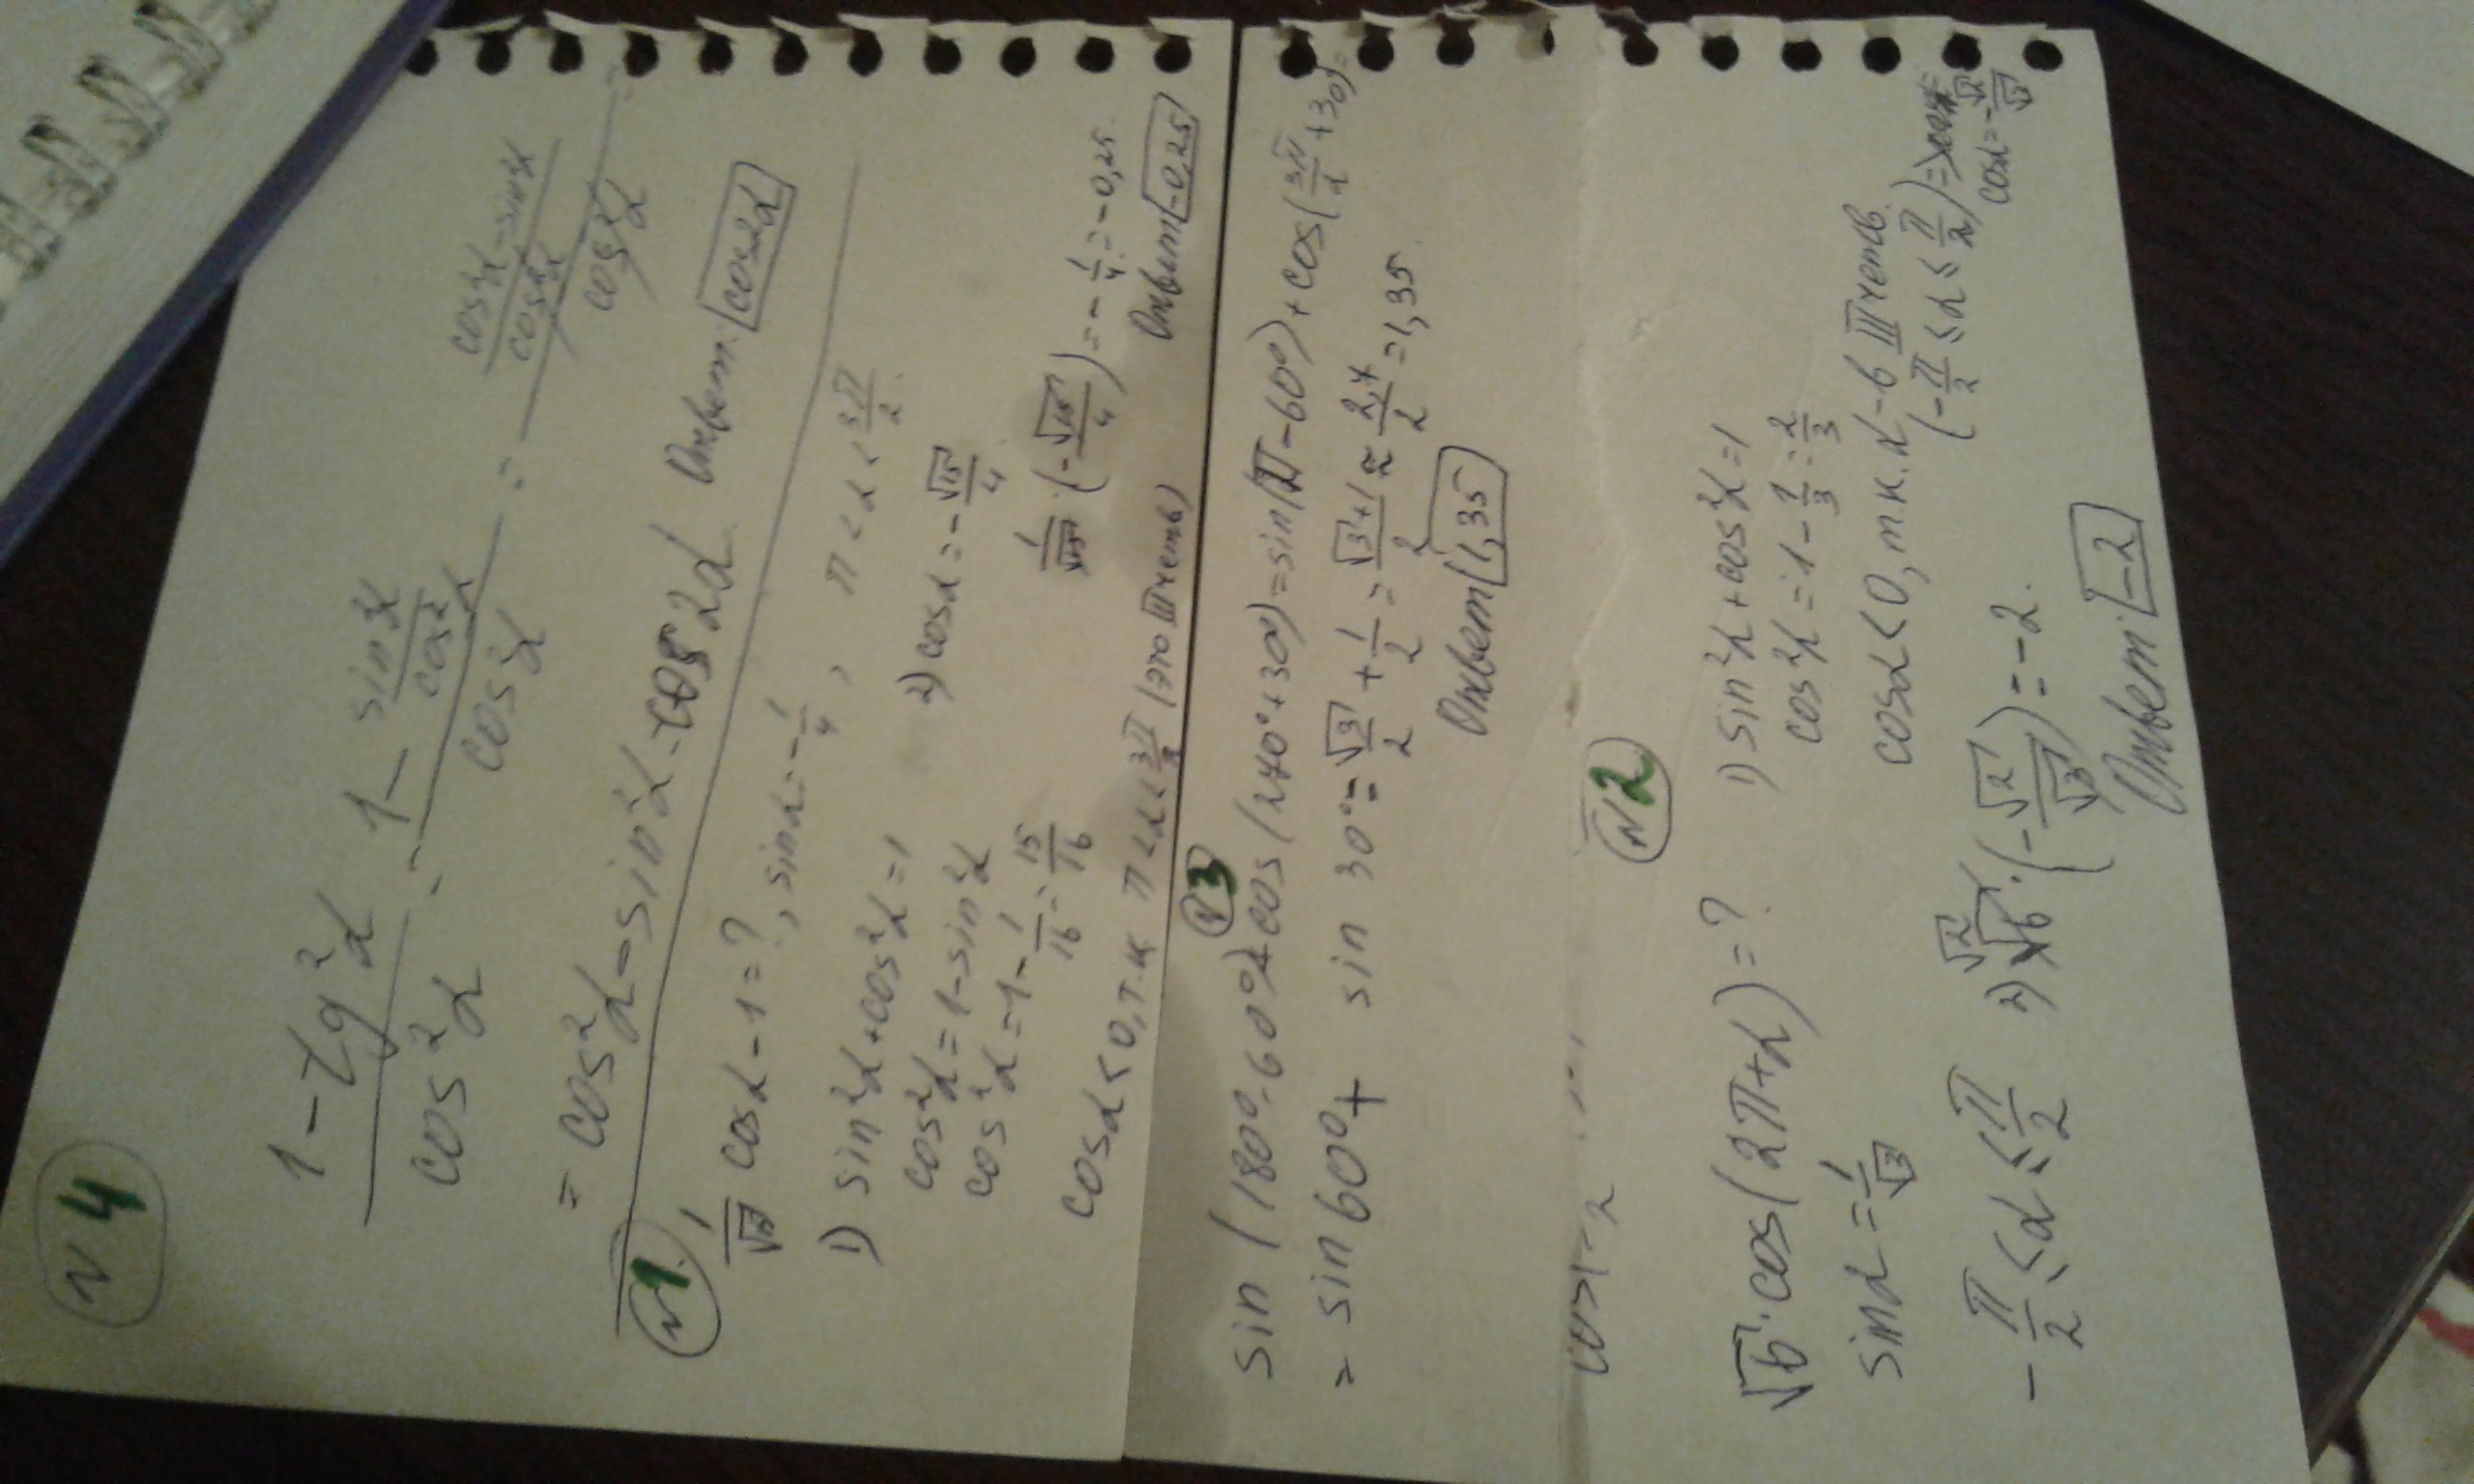 N 4
(1 - tg²α)/cos²α = (1 - sin²α/cos²α)/cos²α = ((cos²α - sin²α)/cos²α)/cos²α =
= cos²α - sin²α = cos 2α Ответ: cos2α
N 1.
1/√15 cosα - 1 = ?, sinα = -1/4, π < α < 3π/2.
1) sin²α + cos²α = 1
cos²α = 1 - sin²α
cos²α = 1 - 1/16 = 15/16
cosα < 0, т.к π < α < 3π/2 (это III четв)
2) cosα = -√15/4
1/√15 · (-√15/4) = -1/4 = -0,25.
Ответ -0,25
N3
sin(180° - 60°) + cos(270° + 30°) = sin(π - 60°) + cos(3π/2 + 30) =
= sin 60° + sin 30° = √3/2 + 1/2 = (√3 + 1)/2 ≈ 2,7/2 = 1,35
Ответ 1,35
N2
√6 · cos(2π + α) = ?
sinα = 1/√3
-π/2 ≤ α ≤ π/2
1) sin²α + cos²α = 1
cos²α = 1 - 1/3 = 2/3
cosα < 0, т.к. α - в III четв.
(-π/2 ≤ α ≤ π/2) => cosα = -√2/√3
2) √6 · (-√2/√3) = -2.
Ответ: -2